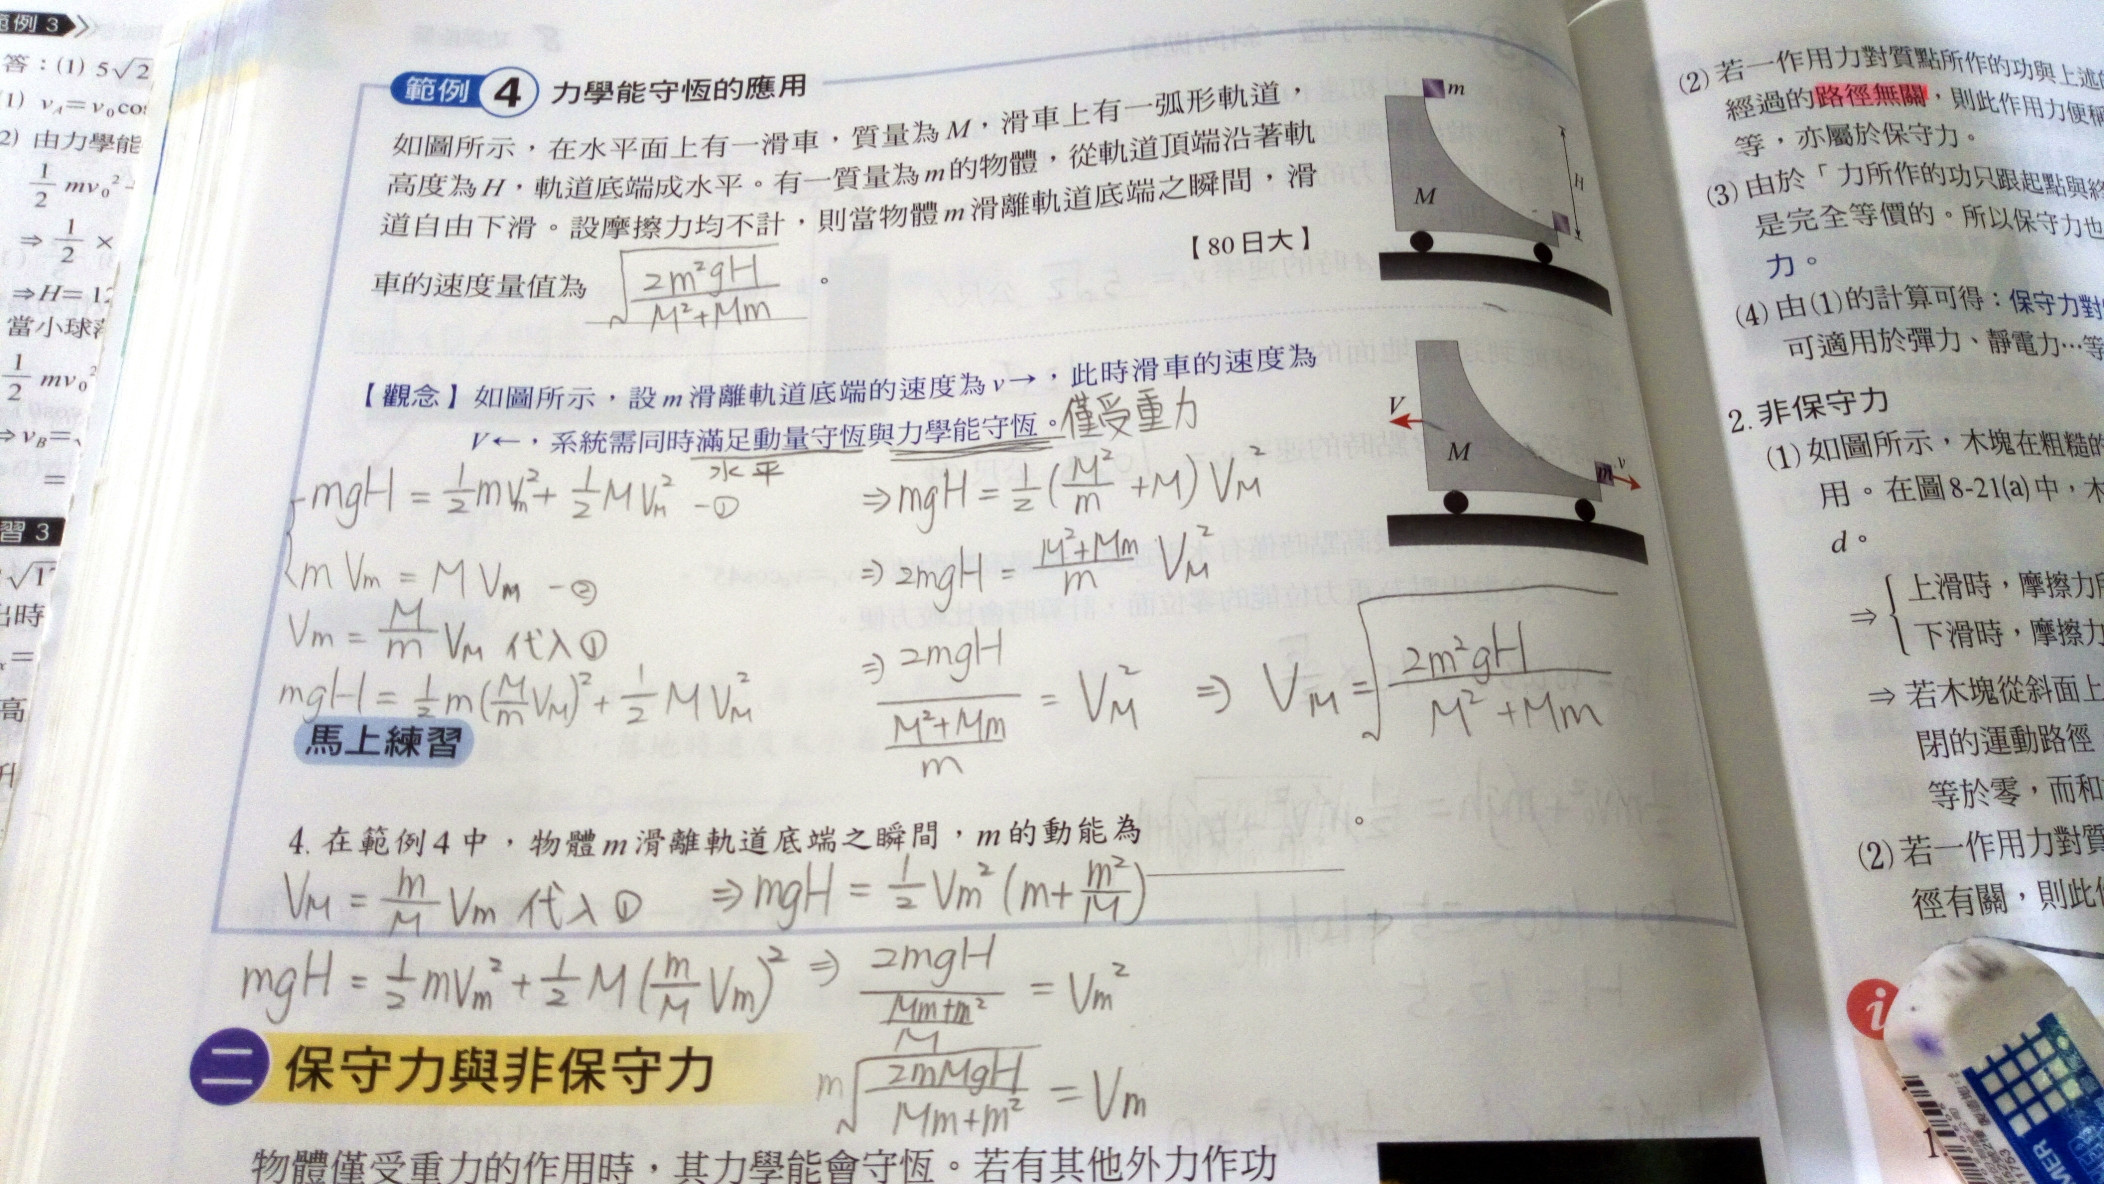 範例 3
答：(1) 5√2
1) vA＝v0cos
2) 由力學能
1/2 mv0² -
⇒ 1/2 ×
⇒H＝12
當小球落
1/2 mv0²
⇒vB＝
＝
習 3
出時
高
升
範例 4 力學能守恆的應用
如圖所示，在水平面上有一滑車，質量為 M，滑車上有一弧形軌道，
高度為 H，軌道底端成水平。有一質量為 m 的物體，從軌道頂端沿著軌
道自由下滑。設摩擦力均不計，則當物體 m 滑離軌道底端之瞬間，滑
車的速度量值為 √(2m²gH / M²+Mm) 。
【80日大】
m
M
H
【觀念】如圖所示，設 m 滑離軌道底端的速度為 v→，此時滑車的速度為
V←，系統需同時滿足動量守恆與力學能守恆。僅受重力
水平
V
M
m
v
mgH = 1/2 mVm² + 1/2 MVM² -①
mVm = MVM -②
Vm = M/m VM 代入①
mgH = 1/2 m(M/m VM)² + 1/2 MVM²
⇒ mgH = 1/2 (M²/m + M) VM²
⇒ 2mgH = M²+Mm/m VM²
⇒ 2mgH / (M²+Mm/m) = VM² ⇒ VM = √(2m²gH / M²+Mm)
馬上練習
4. 在範例 4 中，物體 m 滑離軌道底端之瞬間，m 的動能為 。
VM = m/M Vm 代入① ⇒ mgH = 1/2 Vm² (m + m²/M)
mgH = 1/2 mVm² + 1/2 M(m/M Vm)² ⇒ 2mgH / (Mm+m²/M) = Vm²
m√(2mMgH / Mm+m²) = Vm
二 保守力與非保守力
物體僅受重力的作用時，其力學能會守恆。若有其他外力作功
(2) 若一作用力對質點所作的功與上述
經過的路徑無關，則此作用力便稱
等，亦屬於保守力。
(3) 由於「力所作的功只跟起點與終
是完全等價的。所以保守力也
力。
(4) 由(1)的計算可得：保守力對
可適用於彈力、靜電力…等
2. 非保守力
(1) 如圖所示，木塊在粗糙的
用。在圖 8-21(a) 中，木
d。
⇒ { 上滑時，摩擦力所
下滑時，摩擦力
⇒ 若木塊從斜面上
閉的運動路徑
等於零，而和
(2) 若一作用力對質
徑有關，則此作
i
1.